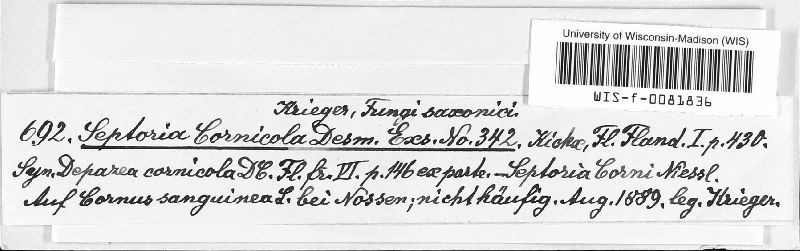 University of Wisconsin-Madison (WIS)
WIS-f-0081836
Krieger, Fungi saxonici.
692. Septoria Cornicola Desm. Exs. No. 342. Kickx, Fl. Fland. I. p. 430.
Syn. Depazea cornicola DC. Fl. fr. VI. p. 146 ex parte. – Septoria Corni Niessl.
Auf Cornus sanguinea L. bei Nossen; nicht häufig. Aug. 1889. leg. Krieger.